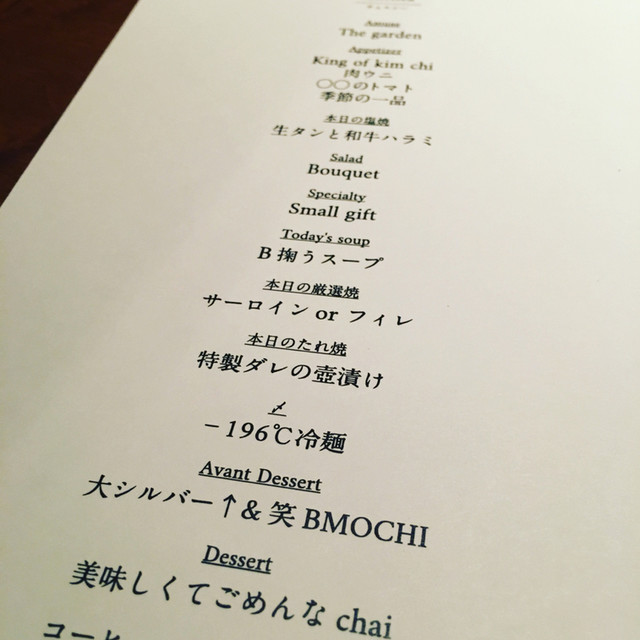 Amuse
The garden
Appetizer
King of kim chi
肉ウニ
〇〇のトマト
季節の一品
本日の塩焼
生タンと和牛ハラミ
Salad
Bouquet
Specialty
Small gift
Today's soup
B 掬うスープ
本日の厳選焼
サーロイン or フィレ
本日のたれ焼
特製ダレの壺漬け
〆
－196℃冷麺
Avant Dessert
大シルバー↑& 笑 BMOCHI
Dessert
美味しくてごめんな chai
コーヒ